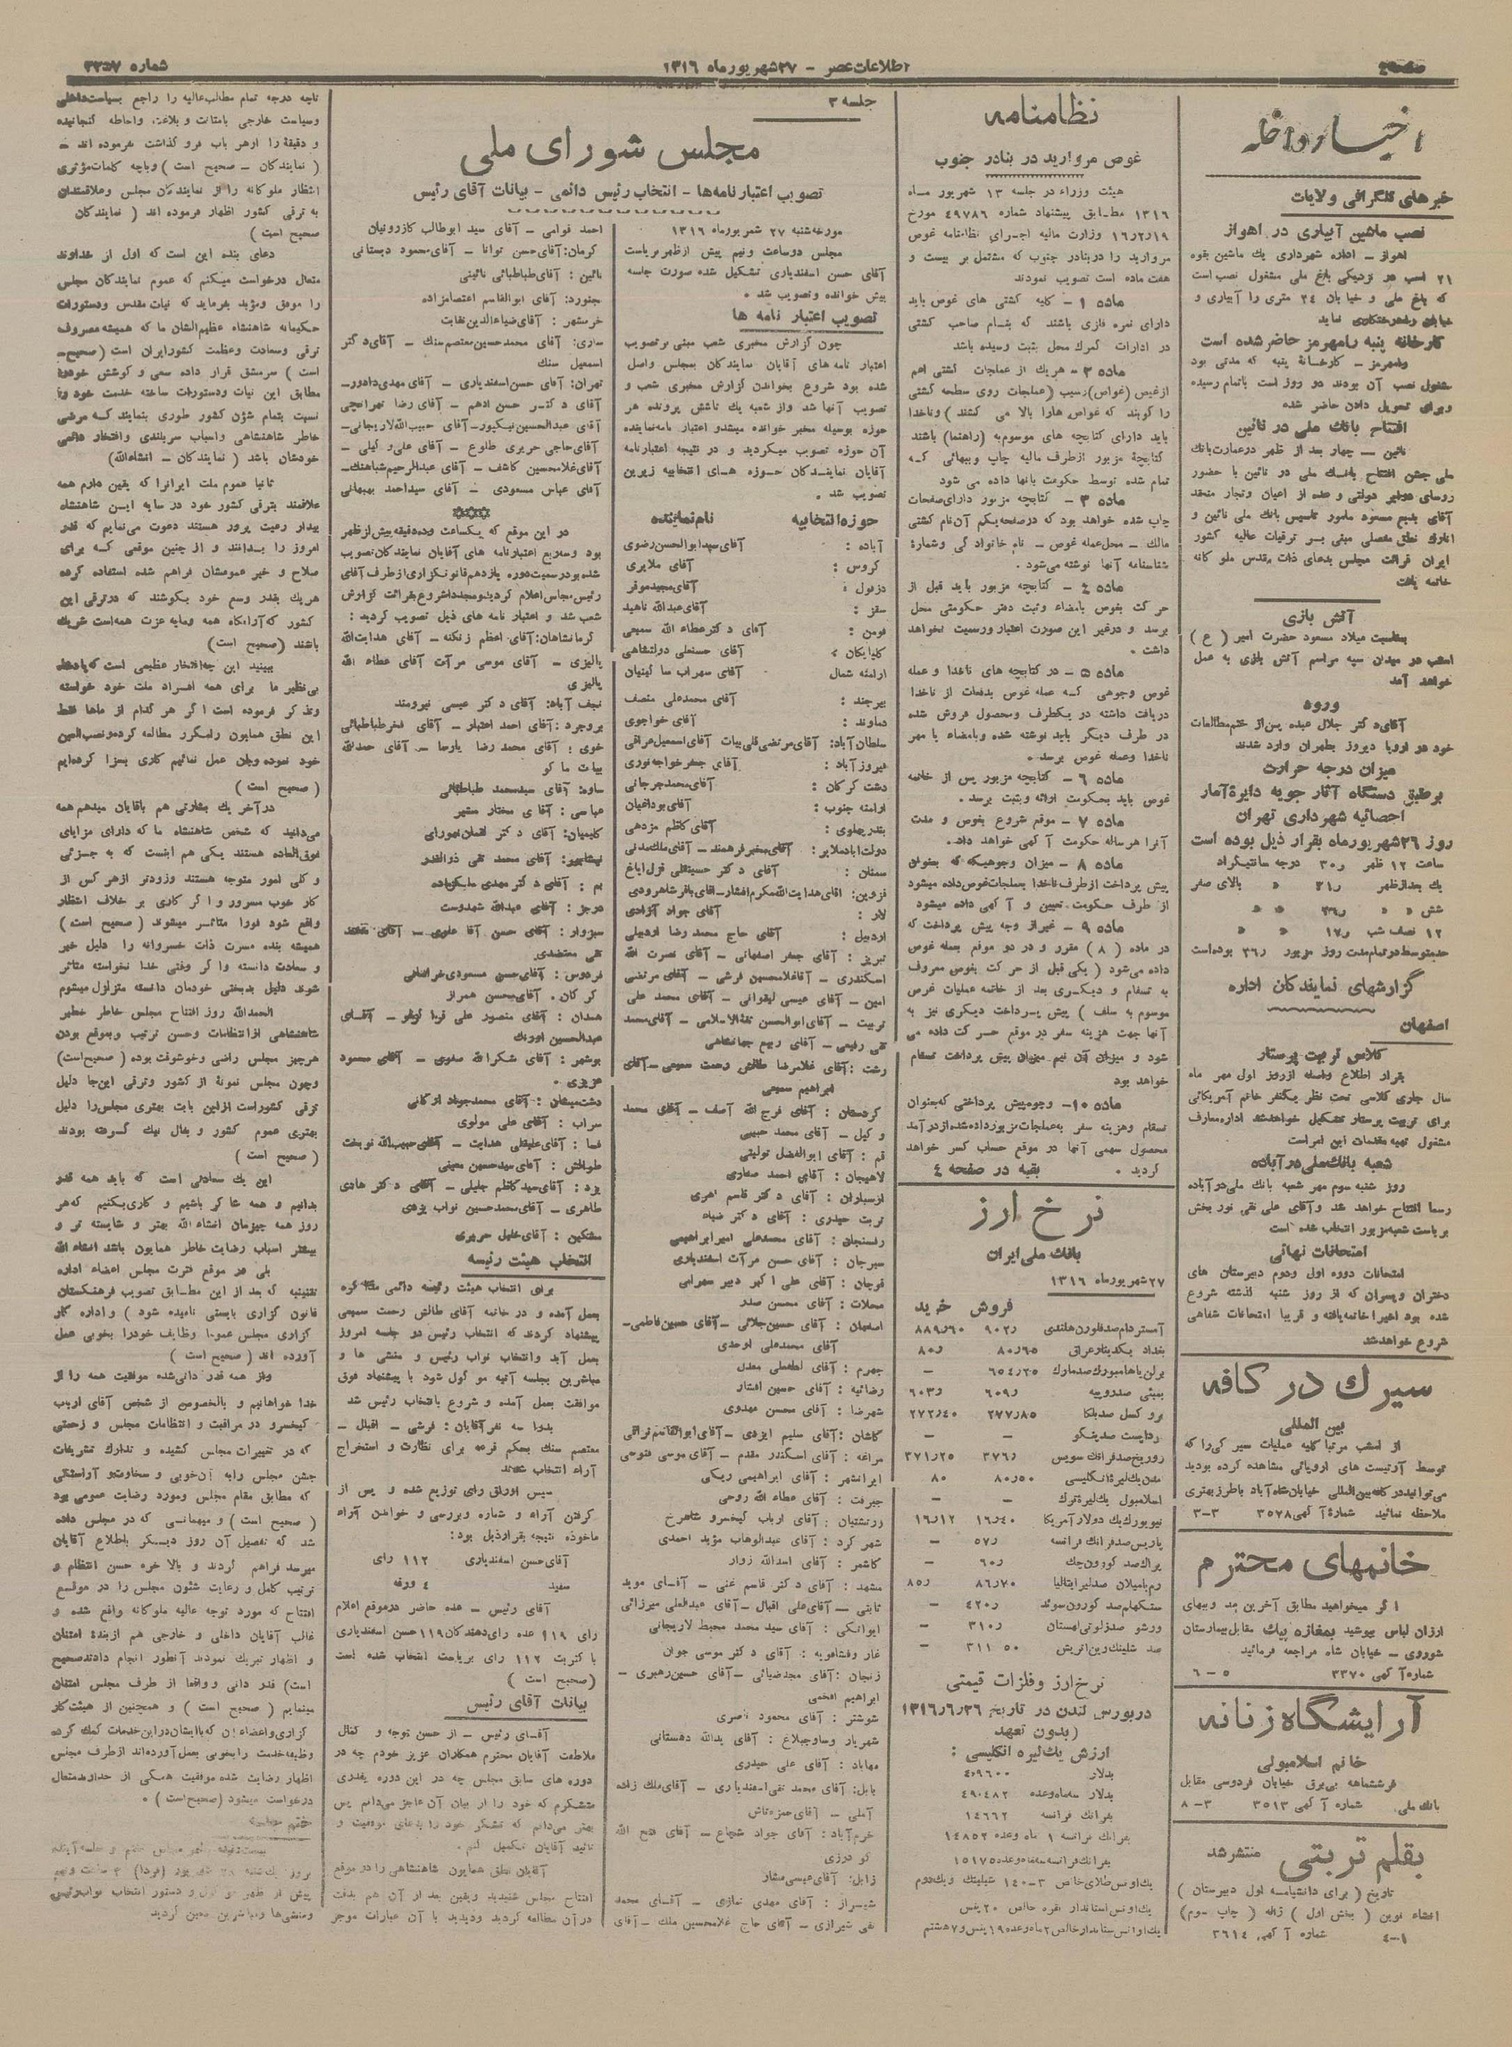 صفحه ۲
اطلاعات عصر - ۲۷ شهریور ماه ۱۳۱۶
شماره ۳۳۵۷
اخبار داخله
خبرهای تلگرافی ولایات
نصب ماشین آبیاری در اهواز
اهواز - اداره شهرداری یك ماشین بقوه
۲۱ اسب در نزدیکی باغ ملی مشغول نصب است
که باغ ملی و خیابان ۲۴ متری را آبیاری و
نماید
کارخانه پنبه رامهرمز حاضر شده است
رامهرمز - کارخانهٔ پنبه که مدتی بود
مشغول نصب آن بودند دو روز است باتمام رسیده
وبرای تحویل دادن حاضر شده
افتتاح بانك ملی در نائین
نائین - چهار بعد از ظهر درعمارت بانك
ملی جشن افتتاح بانك ملی در نائین با حضور
روسای دوایر دولتی و عده از اعیان وتجار منعقد
آقای بدیع مسعود مامور تاسیس بانك ملی نائین و
انارك نطق مفصلی مبنی بسر ترقیات عالیه کشور
ایران قرائت مجلس بدعای ذات مقدس ملوکانه
خاتمه یافت
آتش بازی
بمناسبت میلاد مسعود حضرت امیر ( ع )
امشب در میدان سپه مراسم آتش بازی به عمل
خواهد آمد
ورود
آقای دکتر جلال عبده پس از ختم مطالعات
خود در اروپا دیروز بطهران وارد شدند
میزان درجه حرارت
برطبق دستگاه آثار جویه دایرهٔ آمار
احصائیه شهرداری تهران
روز ۲۶ شهریور ماه بقرار ذیل بوده است
ساعت ۱۲ ظهر ۳۰ر درجه سانتیگراد
یك بعد از ظهر ۳۱ر » بالای صفر
شش » » ۲۶ر » »
۱۲ نصف شب ۱۷ر » »
حد متوسط در تمام مدت روز مزبور ۲۶ر بوده است
گزارشهای نمایندگان اداره
اصفهان
کلاس تربیت پرستار
بقرار اطلاع واصله ازروز اول مهر ماه
سال جاری کلاسی تحت نظر یکنفر خانم آمریکائی
برای تربیت پرستار تشکیل خواهد شد اداره معارف
مشغول تهیه مقدمات این امر است
شعبه بانك ملی در آباده
روز شنبه سوم مهر شعبه بانك ملی در آباده
رسما افتتاح خواهد شد و آقای علی نقی نور بخش
بریاست شعبه مزبور انتخاب شده است
امتحانات نهائی
امتحانات دوره اول ودوم دبیرستان های
دختران و پسران که از روز شنبه گذشته شروع
شده بود اخیرا خاتمه یافته و قریبا امتحانات شفاهی
شروع خواهد شد
سیرك در كافه
بین المللی
از امشب مرتبا کلیه عملیات سیر کی را که
توسط آرتیست های اروپائی مشاهده کرده بودید
می توانید در کافه بین المللی خیابان شاه آباد باطرز بهتری
ملاحظه نمائید شمارهٔ آگهی ۳۵۷۸ ۳-۳
خانمهای محترم
اگر میخواهید مطابق آخرین مد و ببهای
ارزان لباس بپوشید بمغازه پیك مقابل بیمارستان
شوروی - خیابان شاه مراجعه فرمائید
شماره آگهی ۳۳۷۰ ۵-۶
آرایشگاه زنانه
خانم اسلامبولی
فر ششماهه بی برق خیابان فردوسی مقابل
بانك ملی. شماره آگهی ۳۵۱۳ ۳-۸
بقلم تربتی منتشر شد
تاریخ ( برای دانشنامه اول دبیرستان )
انشاء نوین ( بخش اول ) ژاله ( چاپ سوم )
۱-۴ شماره آگهی ۳۶۱۴
نظامنامه
غوص مروارید در بنادر جنوب
هیئت وزراء در جلسه ۱۳ شهریور ماه
۱۳۱۶ مطابق پیشنهاد شماره ۴۹۷۸۶ مورخ
۱۶ر۲ر۱۹ وزارت مالیه اجرای نظامنامه غوص
مروارید را در بنادر جنوب که مشتمل بر بیست و
هفت ماده است تصویب نمودند
ماده ۱ - کلیه کشتی های غوص باید
دارای نمره فلزی باشند که بنام صاحب کشتی
در ادارات گمرك محل بثبت رسیده باشد
ماده ۲ - هر یك از عملجات کشتی اعم
ازغیص (غواص) وسیب (عملجات روی سطحه کشتی
را گویند که غواص هارا بالا می کشند ) وناخدا
باید دارای کتابچه های موسوم به (راهنما) باشند
کتابچهٔ مزبور از طرف مالیه چاپ وببهائی که
تمام شده توسط حکومت بآنها داده می شود
ماده ۳ - کتابچه مزبور دارای صفحات
چاپ شده خواهد بود که درصفحه یکم آن نام کشتی
مالك - محل عمله غوص - نام خانوادگی وشمارهٔ
شناسنامه آنها نوشته می شود.
ماده ۴ - کتابچه مزبور باید قبل از
حرکت بغوص بامضاء وثبت دفتر حکومتی محل
برسد و درغیر این صورت اعتبار ورسمیت نخواهد
داشت.
ماده ۵ - در کتابچه های ناخدا و عمله
غوص وجوهی که عمله غوص بدفعات از ناخدا
دریافت داشته در یکطرف ومحصول فروش شده
در طرف دیگر باید نوشته شده وبامضاء یا مهر
ناخدا وعمله غوص برسد.
ماده ۶ - کتابچه مزبور پس از خاتمه
غوص باید بحکومت ارائه وبثبت برسد.
ماده ۷ - موقع شروع بغوص و مدت
آنرا هر ساله حکومت آگهی خواهد داد.
ماده ۸ - میزان وجوهیکه که بعنوان
پیش پرداخت از طرف ناخدا بعملجات غوص داده میشود
از طرف حکومت تعیین و آگهی داده میشود
ماده ۹ - غیر از وجه پیش پرداخت که
در ماده ( ۸ ) مقرر و در دو موقع بعمله غوص
داده می شود ( یکی قبل از حرکت بغوص معروف
به تسقام و دیگری بعد از خاتمه عملیات غوص
موسوم به سلف ) پیش پرداخت دیگری نیز به
آنها جهت هزینه سفر در موقع حرکت داده می
شود و میزان آن نیم میزان پیش پرداخت تسقام
خواهد بود
ماده ۱۰ - وجوه پیش پرداختی که بعنوان
تسقام وهزینه سفر به عملجات مزبور داده شده از درآمد
محصول سهمی آنها در موقع حساب کسر خواهد
گردید. بقیه در صفحه ۴
نرخ ارز
بانك ملی ایران
۲۷ شهریور ماه ۱۳۱۶
فروش خرید
آمستردام صد فلورن هلندی ۹۰۲ر ۸۸۹ر۶۰
بغداد یکدینار عراقی ۸۰ر۶۵ ۸۰ر
برلن یا هامبورك صد مارك ۶۵۴ر۲۵ -
بمبئی صد روپیه ۶۰۹ر ۶۰۳ر
بروکسل صد بلگا ۲۷۷ر۸۵ ۲۷۲ر۴۰
- -
زوریخ صد فرانك سویس ۳۷۶ر ۳۷۱ر۲۵
لندن یك لیره انگلیسی ۸۰ر۵۰ ۸۰
اسلامبول یك لیره ترك - -
نیویورك یك دولار آمریکا ۱۶ر۴۰ ۱۶ر۱۲
پاریس صد فرانك فرانسه ۵۷ر -
پراك صد کورون چك ۶۰ر -
رم یا میلان صد لیر ایتالیا ۸۶ر۷۰ ۸۵ر
ستکهلم صد کورون سوئد ۴۲۰ر -
ورشو صد زلوتی لهستان ۳۱۰ر -
صد شلینك وین اتریش ۳۱۱ ۵۰ -
نرخ ارز وفلزات قیمتی
در بورس لندن در تاریخ ۱۳۱۶ر۶ر۲۶
( بدون تعهد
ارزش یك لیره انگلیسی :
بدلار ۴ر۹۶۰۰
بدلار سه ماه وعده ۴ر۹۴۸۲
بفرانك فرانسه ۱۴۶۶۲
بفرانك فرانسه ۱ ماه وعده ۱۴۸۵۲
بفرانك فرانسه سه ماه وعده ۱۵۱۷۵
یك اونس طلای خالص ۱۴۰-۳ شیلینك ونیك دوم
یك اونس استاندارد نقره خالص ۲۰ پنس
جلسه ۳
مجلس شورای ملی
تصویب اعتبارنامه ها - انتخاب رئیس دائمی - بیانات آقای رئیس
مورخه شنبه ۲۷ شهریور ماه ۱۳۱۶
مجلس دو ساعت و نیم پیش از ظهر بریاست
آقای حسن اسفندیاری تشکیل شده صورت جلسه
پیش خوانده وتصویب شد.
تصویب اعتبار نامه ها
چون گزارش مخبری شعب مبنی بر تصویب
اعتبار نامه های آقایان نمایندگان بمجلس واصل
شده بود شروع بخواندن گزارش مخبری شعب و
تصویب آنها شد واز شعبه یك تا شش پرونده هر
حوزه بوسیله مخبر خوانده میشد و اعتبار نامه نماینده
آن حوزه تصویب میگردید و در نتیجه اعتبارنامه
آقایان نمایندگان حوزه های انتخابیه زیرین
تصویب شد.
حوزه انتخابیه نام نماینده
آباده : آقای سید ابوالحسن رضوی
گروس : آقای ملایری
دزفول : آقای مجید موقر
سقز : آقای عبدالله ناهید
فومن : آقای دکتر عطاء الله سمیعی
گلپایگان : آقای حسنعلی دولتشاهی
ارامنه شمال آقای سهراب ساگینیان
بیرجند : آقای محمد علی منصف
دماوند : آقای خواجوی
سلطان آباد: آقای مرتضی قلی بیات آقای اسمعیل عراقی
فیروز آباد : آقای جعفر خواجه نوری
دشت گرگان : آقای محمد جرجانی
ارامنه جنوب : آقای بوداغیان
بندر پهلوی : آقای کاظم مژدهی
دولت آباد ملایر: آقای مخبر فرهمند - آقای ملك مدنی
سمنان : آقای دکتر حسینقلی قزل ایاغ
قزوین: آقای هدایت الله مکرم افشار - آقای باقر شاهرودی
لار : آقای جواد آزادی
اردبیل : آقای حاج محمد رضا اردبیلی
تبریز : آقای جعفر اصفهانی - آقای نصرت الله
اسکندری - آقا غلامحسین فرشی - آقای مرتضی
امین - آقای عیسی لیقوانی - آقای محمد علی
تربیت - آقای ابوالحسن ثقة الاسلامی - آقای محمد
تقی رفیعی - آقای ربیع جهانشاهی
رشت : آقای غلامرضا طالش رحمت سمیعی - آقای
ابراهیم سمیعی
کردستان : آقای فرج الله آصف - آقای محمد
وکیل - آقای محمد حبیبی
قم : آقای ابوالفضل تولیتی
لاهیجان : آقای احمد صفاری
ارسباران : آقای دکتر قاسم اهری
تربت حیدری : آقای دکتر ضیاء
رفسنجان : آقای محمد علی امیر ابراهیمی
سیرجان : آقای حسن مرآت اسفندیاری
قوچان : آقای علی اکبر دبیر سهرابی
محلات : آقای محسن صدر
اصفهان : آقای حسین جلائی - آقای حسین فاطمی -
آقای محمد علی اوحدی
جهرم : آقای لطفعلی معدل
رضائیه : آقای حسین افشار
شهرضا : آقای محسن مهدوی
کاشان: آقای سلیم ایزدی - آقای ابوالقاسم نراقی
مراغه : آقای اسکندر مقدم - آقای موسی فتوحی
ایرانشهر : آقای ابراهیمی ریگی
جیرفت : آقای عطاء الله روحی
زرتشتیان : آقای ارباب کیخسرو شاهرخ
شهر کرد : آقای عبدالوهاب مؤید احمدی
کاشمر : آقای اسدالله زوار
مشهد : آقای دکتر قاسم غنی - آقای موید
ثابتی - آقای علی اقبال - آقای عبدالعلی میرزائی
ایوانکی : آقای سید محمد محیط لاریجانی
غار وفشافویه : آقای دکتر موسی جوان
زنجان : آقای مجد ضیائی - آقای حسین رهبری -
ابراهیم افخمی
شوشتر : آقای محمود ناصری
شهریار وساوجبلاغ : آقای یدالله دهستانی
مهاباد : آقای علی حیدری
بابل: آقای محمد تقی اسفندیاری - آقای ملك زاده
آملی - آقای حمزه تاش
خرم آباد : آقای جواد شجاع - آقای فتح الله
گودرزی
زابل: آقای عیسی مشار
شیراز : آقای مهدی نمازی - آقای محمد
تقی شیرازی - آقای حاج غلامحسین ملك - آقای
احمد قوامی - آقای سید ابوطالب کازرونیان
کرمان: آقای حسن توانا - آقای محمود دبستانی
نائین : آقای طباطبائی نائینی
بجنورد: آقای ابوالقاسم اعتصام زاده
خرمشهر : آقای ضیاءالدین نقابت
ساری: آقای محمد حسین معتصم سنك - آقای دکتر
اسمعیل سنك
تهران: آقای حسن اسفندیاری - آقای مهدی دادور -
آقای دکتر حسن ادهم - آقای رضا تهرانچی
آقای عبدالحسین نیکپور - آقای حبیب الله لاریجانی -
آقای حاجی حریری طلوع - آقای علی وکیلی -
آقای غلامحسین کاشف - آقای عبدالرحیم شباهنك -
آقای عباس مسعودی - آقای سید احمد بهبهانی
در این موقع که یکساعت و ده دقیقه پیش از ظهر
بود وسه ربع اعتبارنامه های آقایان نمایندگان تصویب
شده بود رسمیت دوره یازدهم قانونگزاری از طرف آقای
رئیس مجلس اعلام گردید و مجددا شروع بقرائت گزارش
شعب شد و اعتبار نامه های ذیل تصویب گردید :
کرمانشاهان: آقای اعظم زنگنه - آقای هدایت الله
پالیزی - آقای موسی مرآت آقای عطاء الله
پالیزی
نجف آباد: آقای دکتر عیسی نیرومند
بروجرد : آقای احمد اعتبار - آقای فخر طباطبائی
خوی : آقای محمد رضا یارخا - آقای حمدالله
بیات ماکو
ساوه: آقای سیدمحمد طباطبائی
عباسی : آقای مختار مشیر
کلیمیان: آقای دکتر لقمان نهورای
نیشابور: آقای محمد تقی ذوالقدر
بم : آقای دکتر مهدی ملکزاده
درجز : آقای عبدالله شهدوست
سبزوار : آقای حسن آقا علوی - آقای محمد
تقی معتضدی
فردوس : آقای حسن مسعودی خراسانی
گرگان. آقای محسن همراز
همدان : آقای منصور علی - آقای
عبدالحسین اورنك
بوشهر : آقای شکرالله صفوی - آقای محمود
عزیزی.
دشت میشان : آقای محمد جواد ارگانی
سراب : آقای علی مولوی
فسا : آقای علیقلی هدایت - آقای حبیب الله نوبخت
طوالش : آقای سیدحسین معینی
یزد : آقای سیدکاظم جلیلی - آقای دکتر هادی
طاهری - آقای محمد حسین نواب یزدی
مشکین : آقای خلیل حریری
انتخاب هیئت رئیسه
برای انتخاب هیئت رئیسه دائمی مذاکره
بعمل آمده و در خاتمه آقای طالش رحمت سمیعی
پیشنهاد کردند که انتخاب رئیس در جلسه امروز
بعمل آید وانتخاب نواب رئیس و منشی ها و
مباشرین بجلسه آتیه موکول شود با پیشنهاد فوق
موافقت بعمل آمده و شروع بانتخاب رئیس شد
بدوا سه نفر آقایان : فرشی - اقبال -
معتصم سنك بحکم قرعه برای نظارت و استخراج
آراء انتخاب شدند
سپس اوراق رای توزیع شده و پس از
گرفتن آراء و شماره وبررسی و خواندن آراء
ماخوذه نتیجه بقرار ذیل بود:
آقای حسن اسفندیاری ۱۱۲ رای
سفید ۴ ورقه
آقای رئیس - عده حاضر در موقع اعلام
رای ۱۱۹ عده رای دهندگان ۱۱۹ حسن اسفندیاری
باکثریت ۱۱۲ رای بریاست انتخاب شده است
(صحیح است )
بیانات آقای رئیس
آقای رئیس - از حسن توجه و کمال
ملاطفت آقایان محترم همکاران عزیز خودم چه در
دوره های سابق مجلس چه در این دوره بقدری
متشکرم که خود را از بیان آن عاجز می دانم پس
بهتر می دانم که تشکر خود را بدعای موفقیت و
تائید آقایان تکمیل کنم.
آقایان نطق همایون شاهنشاهی را در موقع
افتتاح مجلس شنیدید ویقین بعد از آن هم بدقت
در آن مطالعه کردید ودیدید با آن عبارات موجز
تاچه درجه تمام مطالب عالیه را راجع بسیاست داخلی
وسیاست خارجی بامتانت و بلاغت واحاطه گنجانیده
و دقیقهٔ را ازهر باب فروگذاشت نفرموده اند -
( نمایندگان - صحیح است ) وباچه کلمات مؤثری
انتظار ملوکانه را از نمایندگان مجلس وعلاقمندان
به ترقی کشور اظهار فرموده اند ( نمایندگان
صحیح است )
دعای بنده این است که اول از خداوند
متعال درخواست میکنم که عموم نمایندگان مجلس
را موفق ومؤید بفرماید که نیات مقدس ودستورات
حکیمانه شاهنشاه عظیم الشان ما که همیشه مصروف
ترقی وسعادت وعظمت کشور ایران است (صحیح -
است ) سرمشق قرار داده سعی و کوشش خود را
مطابق این نیات ودستورات ساخته خدمت خود را
نسبت بتمام شؤن کشور طوری بنمایند که مرضی
خاطر شاهنشاهی واسباب سربلندی وافتخار دائمی
خودشان باشد ( نمایندگان - انشاءالله)
ثانیا عموم ملت ایرانرا که یقین دارم همه
علاقمند بترقی کشور خود در سایه این شاهنشاه
بیدار رعیت پرور هستند دعوت می نمایم که قدر
امروز را بدانند و از چنین موقعی که برای
صلاح و خیر عمومشان فراهم شده استفاده کرده
هر یك بقدر وسع خود بکوشند که درترقی این
کشور که آرامگاه همه ومایه عزت همه است شریك
باشند (صحیح است)
ببینید این چه افتخار عظیمی است که پادشاه
بی نظیر ما برای همه افراد ملت خود خواسته
وتذکر فرموده است اگر هر کدام از ماها فقط
این نطق همایون رامکرر مطالعه کرده ونصب العین
خود نموده وبآن عمل نمائیم کاری بسزا کرده ایم
( صحیح است )
در آخر یك بشارتی هم بآقایان میدهم همه
می دانید که شخص شاهنشاه ما که دارای مزایای
فوق العاده هستند یکی هم اینست که به جزئی
و کلی امور متوجه هستند وزودتر ازهر کس از
کار خوب مسرور و اگر کاری بر خلاف انتظار
واقع شود فورا متاثر میشوند ( صحیح است )
همیشه بنده مسرت ذات خسروانه را دلیل خیر
و سعادت دانسته واگر وقتی خدا نخواسته متاثر
شوند دلیل بدبختی خودمان دانسته متزلزل میشوم
الحمدالله روز افتتاح مجلس خاطر خطیر
شاهنشاهی ازانتظامات وحسن ترتیب وبموقع بودن
هر چیز مجلس راضی وخوشوقت بوده ( صحیح است)
وچون مجلس نمونهٔ از کشور وترقی این جا دلیل
ترقی کشور است ازاین بابت بهتری مجلس را دلیل
بهتری عموم کشور و بفال نیك گرفته بودند
( صحیح است )
این یك سعادتی است که باید همه قدر
بدانیم و همه شاکر باشیم و کاری بکنیم که هر
روز همه چیزمان انشاء الله بهتر و شایسته تر و
بیشتر اسباب رضایت خاطر همایون باشد انشاء الله
بلی در موقع فترت مجلس اعضاء اداره
تقنینیه که بعد از این مطابق تصویب فرهنگستان
قانون گزاری بایستی نامیده شود ) واداره کار
گزاری مجلس عموما وظایف خود را بخوبی عمل
آورده اند ( صحیح است )
ونیز همه قدر دانی شده موفقیت همه را از
خدا خواهانیم و بالخصوص از شخص آقای ارباب
کیخسرو در مراقبت و انتظامات مجلس و زحمتی
که در تعمیرات مجلس کشیده و تدارك تشریفات
جشن مجلس را به آن خوبی و سخاوت و آراستگی
که مطابق مقام مجلس ومورد رضایت عمومی بود
( صحیح است ) و میهمانی که در مجلس داده
شد که تفصیل آن روز دیگر باطلاع آقایان
میرسد فراهم کردند و بالاخره حسن انتظام و
ترتیب کامل و رعایت شئون مجلس را در موقع
افتتاح که مورد توجه عالیه ملوکانه واقع شده و
غالب آقایان داخلی و خارجی هم از بنده امتنان
و اظهار تبریك نمودند آنطور انجام دادند صحیح
است) قدر دانی وواقعا از طرف مجلس امتنان
مینمایم ( صحیح است ) و همچنین از هیئت کار
گزاری واعضاء آن که باایشان دراین خدمات کمك کرده
وظیفه خدمت را بخوبی بعمل آورده اند ازطرف مجلس
اظهار رضایت شده موفقیت همگی از خداوند متعال
درخواست میشود (صحیح است ).
ختم جلسه